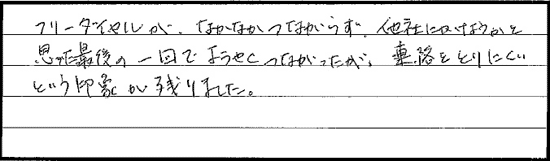 フリーダイヤルが、なかなかつながらず、他社にかけようかと
思った最後の一回でようやくつながったが、連絡をとりにくい
という印象が残りました。